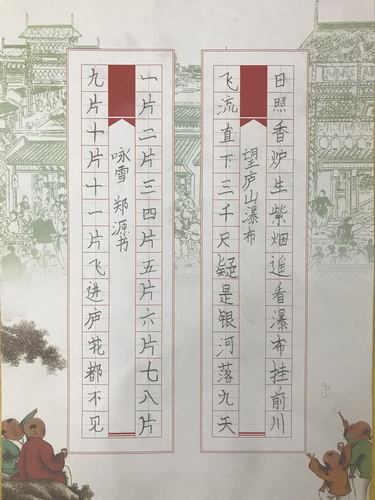 日照香炉生紫烟遥看瀑布挂前川
望庐山瀑布
飞流直下三千尺疑是银河落九天
一片二片三四片五片六片七八片
咏雪 郑源书
九片十片十一片飞进庐花都不见